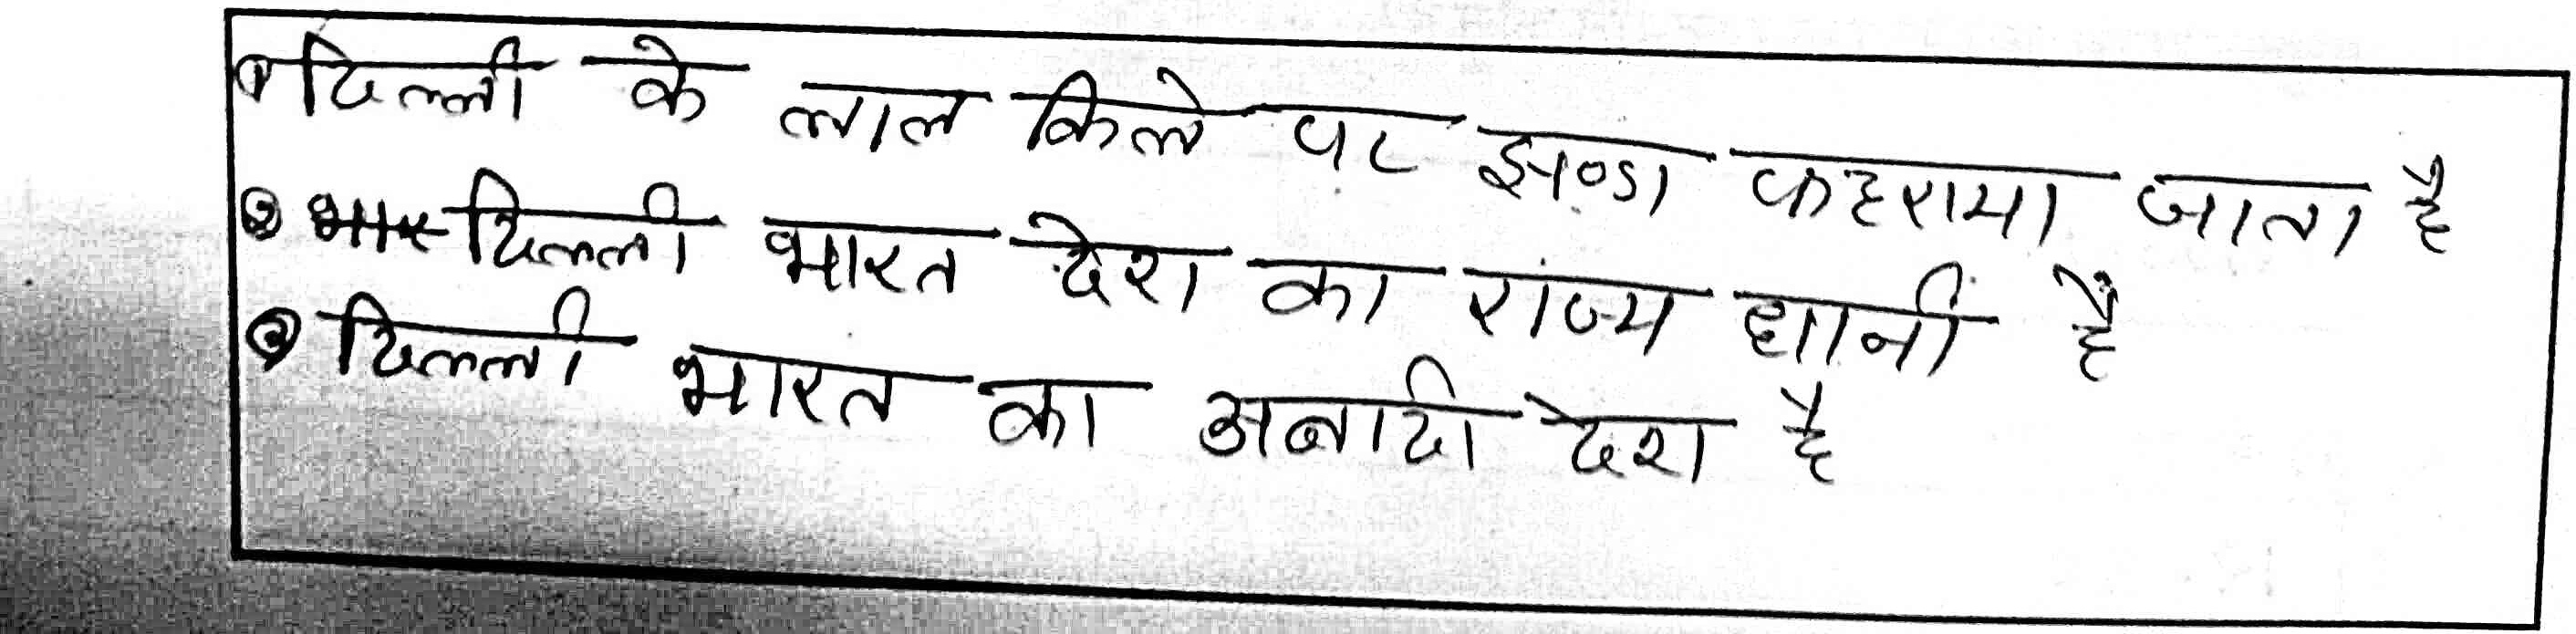 ① दिल्ली के लाल किले पर झण्डा फहराया जाता है
② दिल्ली भारत देश का राज्य धानी है
③ दिल्ली भारत का अजादी देश है